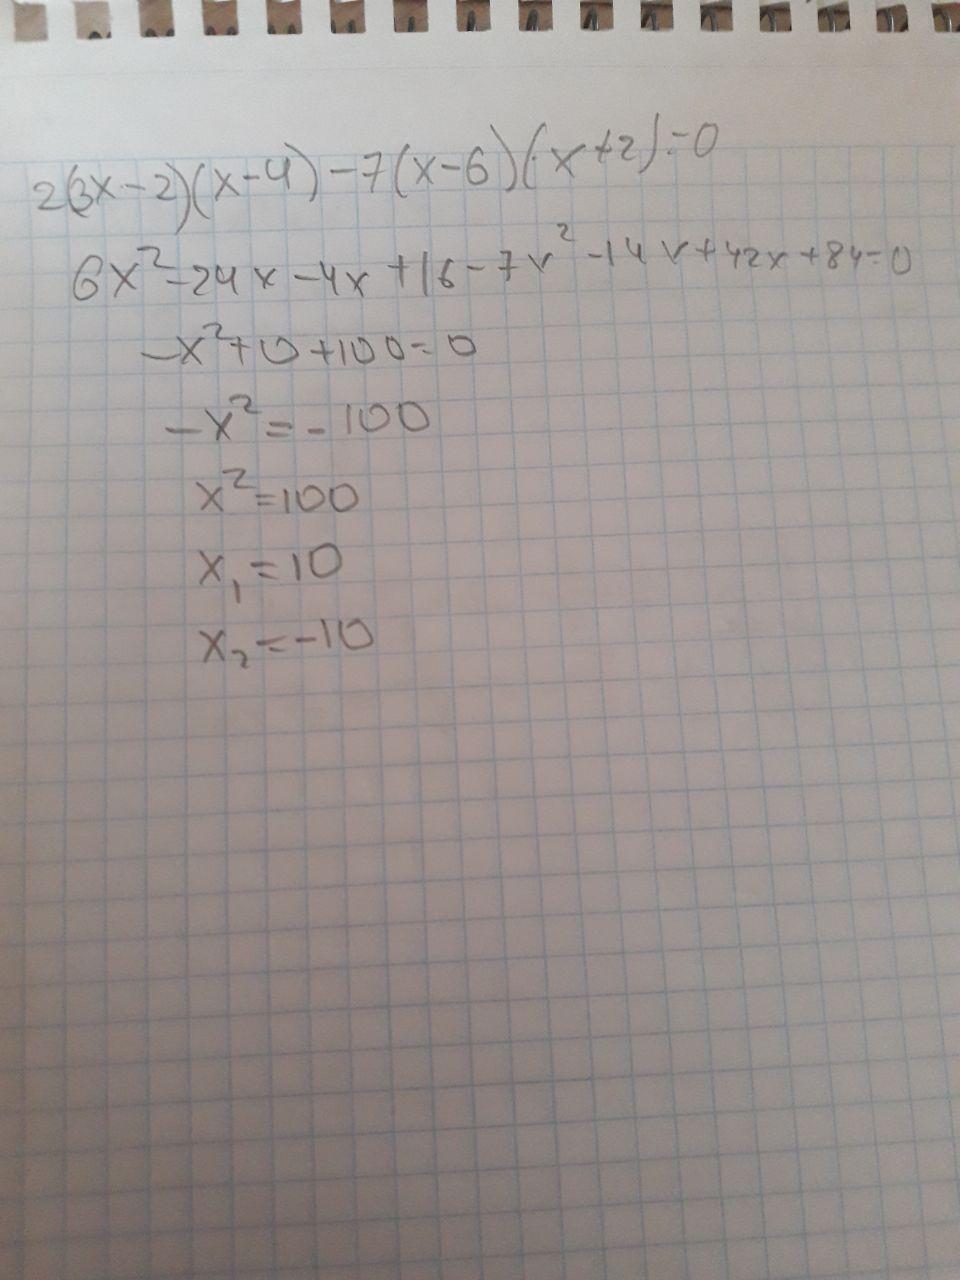 2(3x-2)(x-4)-7(x-6)(x+2)=0
6x²-24x-4x+16-7x²-14x+42x+84=0
-x²+0+100=0
-x²=-100
x²=100
x₁=10
x₂=-10